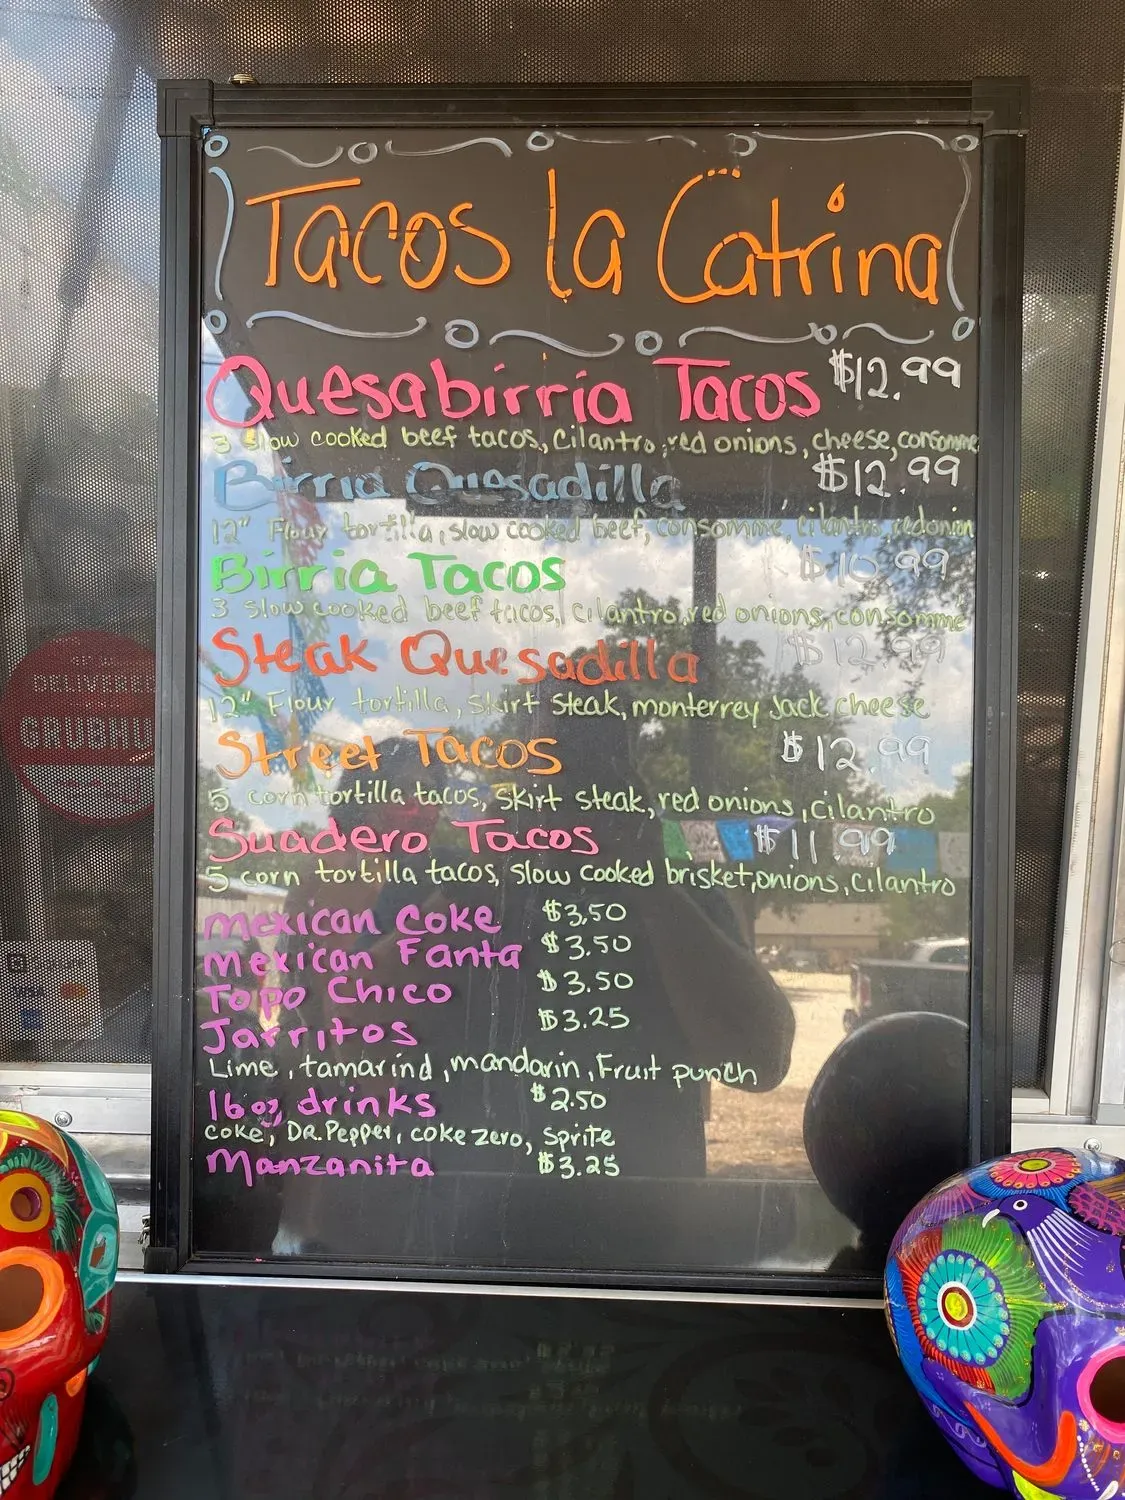 Tacos la Catrina
Quesabirria Tacos $12.99
3 slow cooked beef tacos, cilantro, red onions, cheese, consomme
Birria Quesadilla $12.99
12" Flour tortilla, slow cooked beef, consomme, cilantro, redonion
Birria Tacos $10.99
3 slow cooked beef tacos, cilantro, red onions, consomme
Steak Quesadilla $12.99
12" Flour tortilla, skirt steak, monterrey Jack cheese
Street Tacos $12.99
5 corn tortilla tacos, skirt steak, red onions, cilantro
Suadero Tacos $11.99
5 corn tortilla tacos, slow cooked brisket, onions, cilantro
mexican Coke $3.50
mexican Fanta $3.50
Topo Chico $3.50
Jarritos $3.25
Lime, tamarind, mandarin, Fruit punch
16 oz drinks $2.50
coke, DR. Pepper, coke zero, sprite
Manzanita $3.25
DELIVERED
GRUBHU